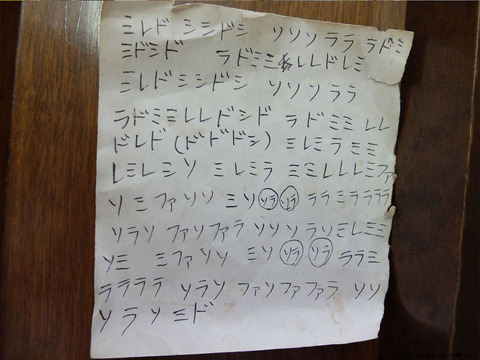 ミレド シシドシ ソソソララ ラドミ
ミドミド ラドミミ レレドレミ
ミレドシシドシ ソソソララ
ラドミミレレドシド ラドミミ レレ
ドレド(ドドドシ) ミレミラ ミミ
レミレシソ ミレミラ ミミレレレミファ
ソミファソソ ミソソラソラ ララミララララ
ソラソ ファソファラ ソソソラソミレミミ
ソミ ミファソソ ミソ ソラ ソラ ララミ
ララララ ソラソ ファソファファラ ソソ
ソラソミド